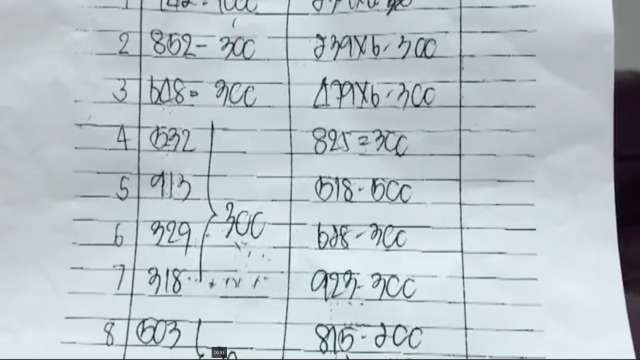 2 852 - 300 239x6 - 300
3 648 = 300 479x6 - 300
4 532 825 = 300
5 913 518 - 500
6 329 300 628 - 300
7 318 923 - 300
8 503 815 - 200